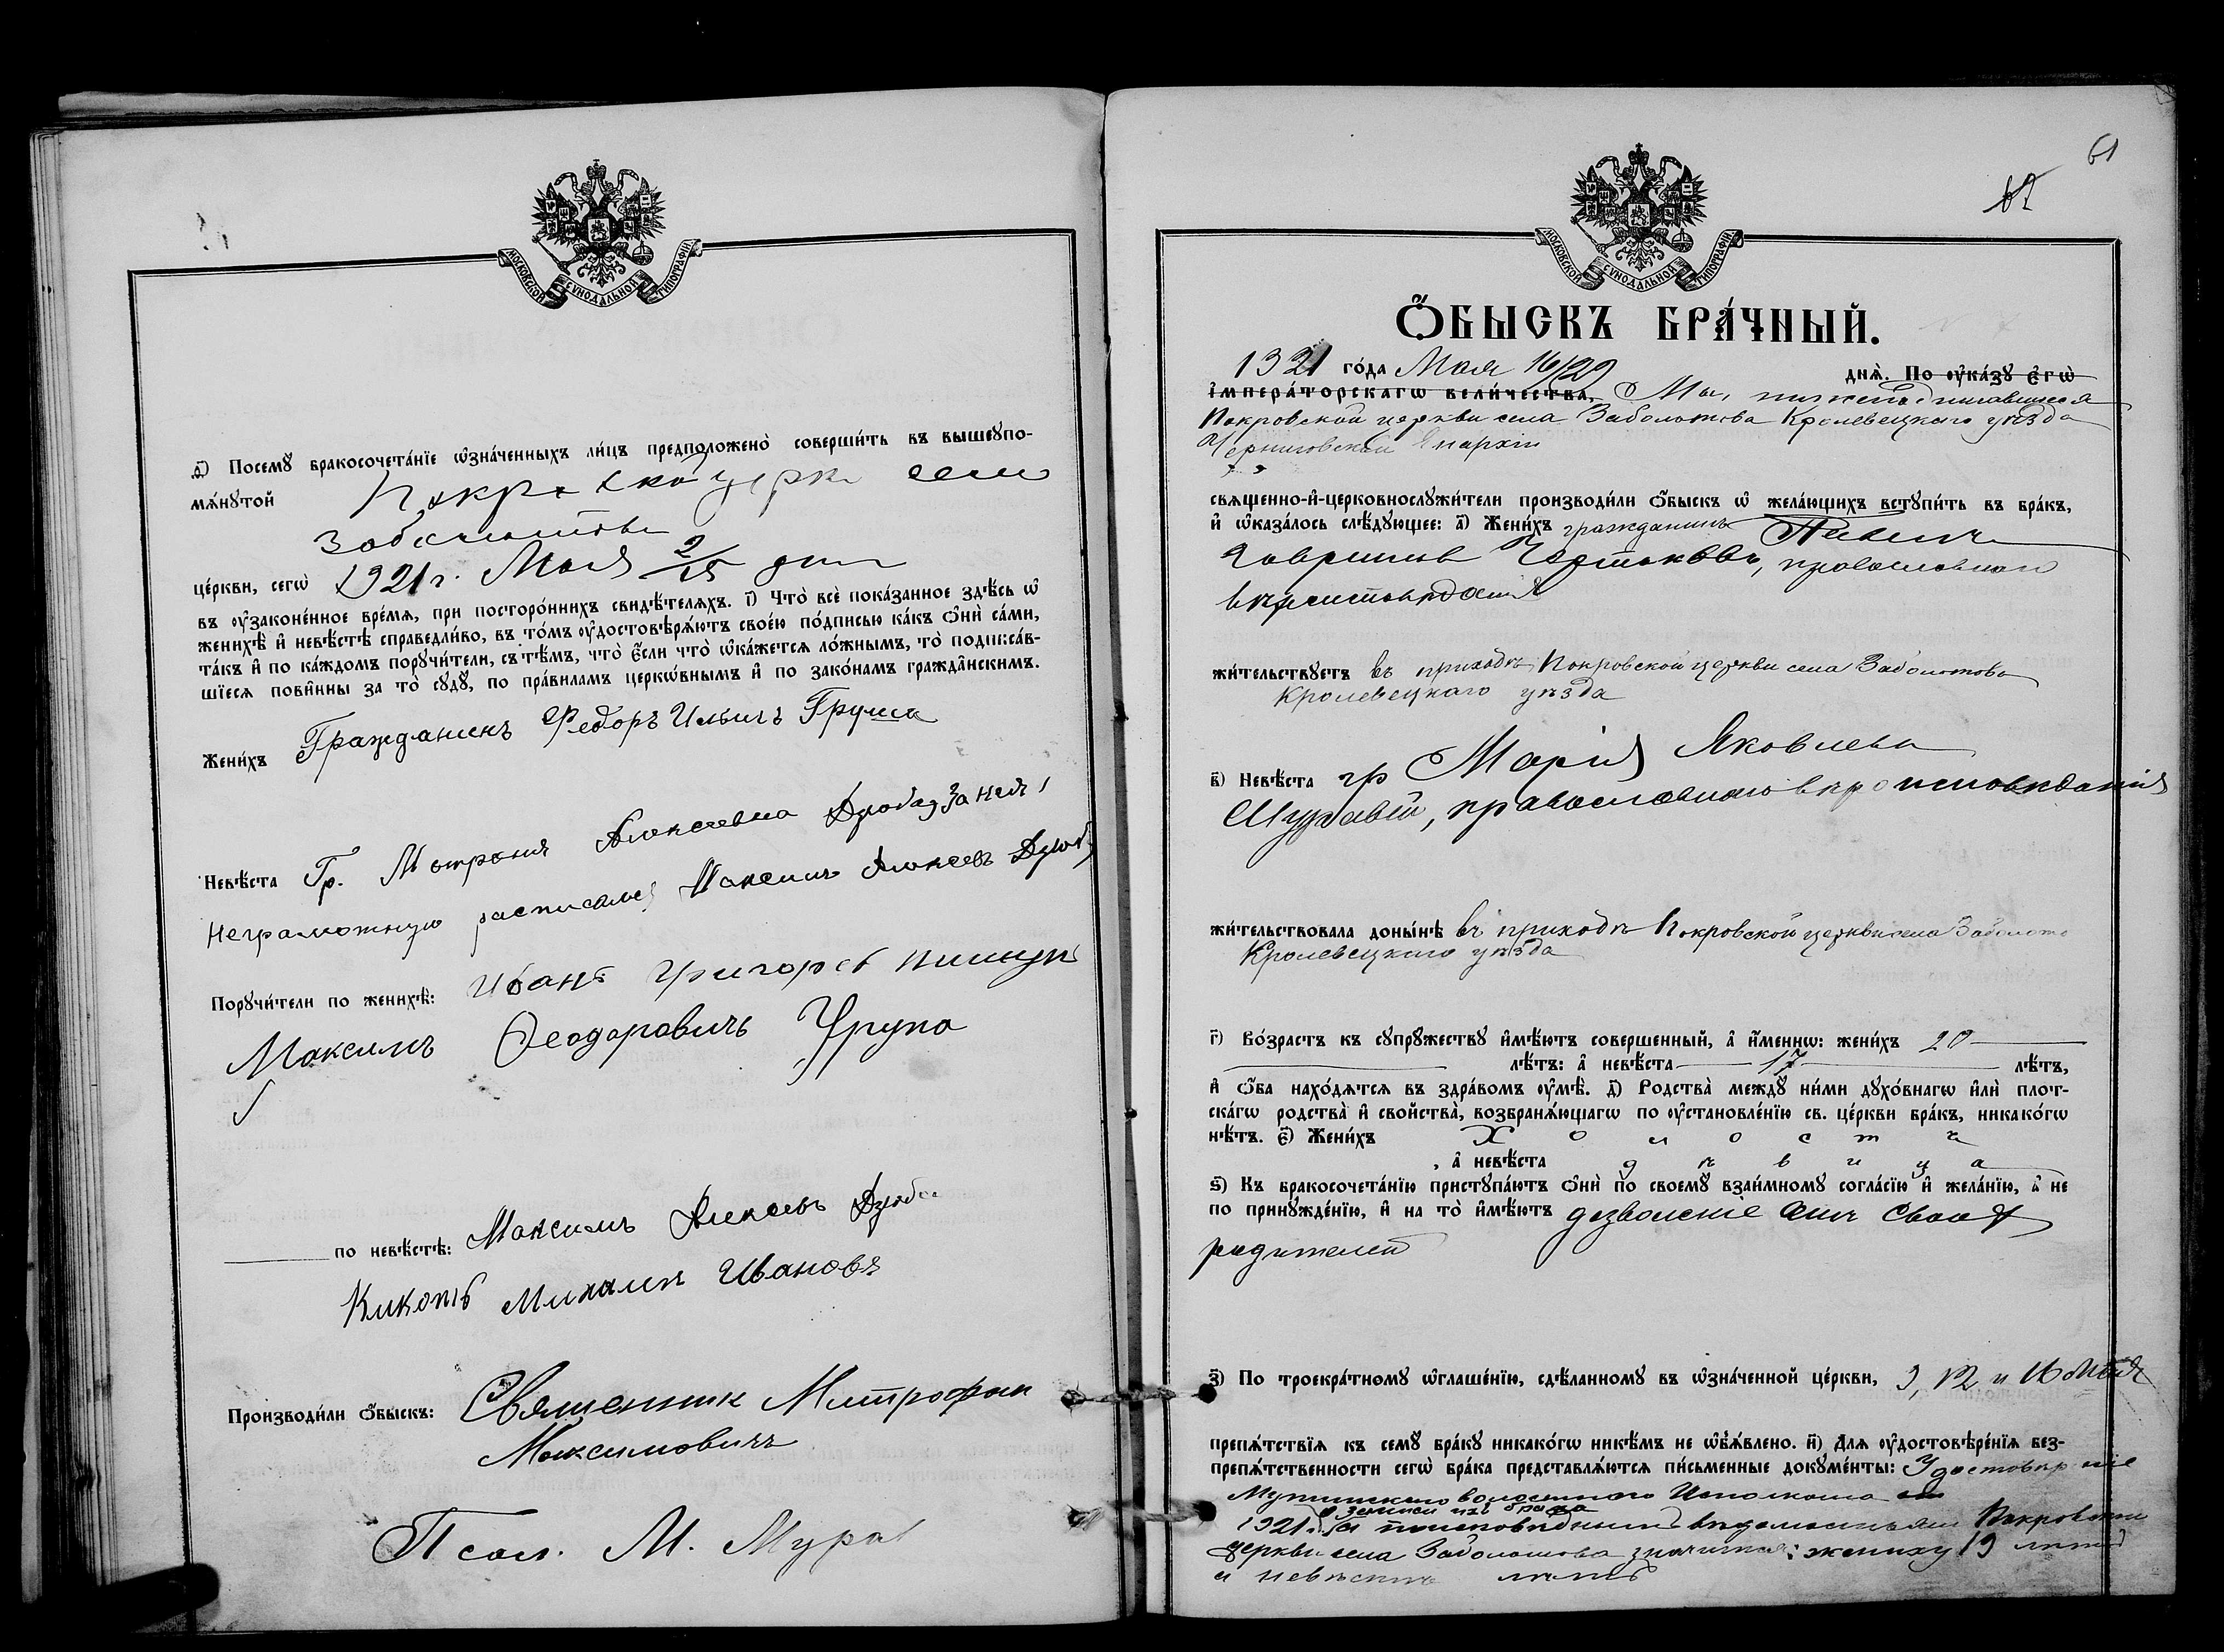 МОСКОВСКОЙ СУНОДАЛЬНОЙ ТИПОГРАФІИ
д҃) Посемꙋ бракосочета́нїе ѡ҆зна́ченныхъ ли́цъ предположено̀ соверши́ть въ вышеꙋпо-
мѧ́нꙋтой
Заболотова
це́ркви, сегѡ̀ 1921 г. Мая 2/15 дня
въ ᲂу҆зако́енное вре́мѧ, при посторо́ннихъ свидѣ́телѧхъ. і҃) Что̀ всѐ пока́занное здѣ́сь ѡ҆
женихѣ̀ и҆ невѣ́стѣ справедли́во, въ то́мъ ᲂу҆достовѣрѧ́ютъ свое́ю по́дписью ка́къ ѻ҆нѝ са́ми,
та́къ и҆ по ка́ждомъ порꙋчи́тели, съ тѣ́мъ, что̀ є҆́сли что̀ ѡ҆ка́жетсѧ ло́жнымъ, то̀ подписа́в-
шїесѧ пови́нны за то̀ сꙋдꙋ̀, по пра́виламъ церко́внымъ и҆ по зако́намъ гражда́нскимъ.
Жени́хъ Гражданинъ Федоръ Ильичъ Груша
Невѣ́ста Гр. Мотрона Алексеевна за нея
Неграмотную расписался Максимъ Алексеевъ
Порꙋчи́тели по женихѣ̀: Иванъ Григорев
Максимъ Феодоровичъ
по невѣ́стѣ: Максимъ Алексеевъ
Михаилъ Ивановъ
Производи́ли ѻ҆́быскъ: Священник Митрофан
Максимовичъ
Псал. М. Мурав
61
62
МОСКОВСКОЙ СУНОДАЛЬНОЙ ТИПОГРАФІИ
Ѻ҆́БЫСКЪ БРА́ЧНЫЙ.
1921 го́да Мая 16/29 днѧ̀. По ᲂу҆ка́зꙋ є҆гѡ̀
і҆мпера́торскагѡ вели́чества, Мы, нижеподписавшиеся
Покровской церкви села Заболотова Кролевецкаго уѣзда
Черниговской Епархіи
свѧще́нно-и҆-церковнослꙋжи́тели производи́ли ѻ҆́быскъ ѡ҆ жела́ющихъ встꙋпи́ть въ бра́къ,
и҆ ѡ҆каза́лось слѣ́дꙋющее: а҃) Жени́хъ гражданинъ Павелъ
Гавриловъ православнаго
вѣроисповѣданія
жи́тельствꙋетъ въ приходѣ Покровской церкви села Заболотова
Кролевецкаго уѣзда
в҃) Невѣ́ста гр Марія Яковлева
православнаго вѣроисповѣданія
жи́тельствовала доны́нѣ въ приходѣ Покровской церкви села Заболото
Кролевецкаго уѣзда
г҃) Во́зрастъ къ сꙋпрꙋ́жествꙋ и҆мѣ́ютъ соверше́нный, а҆ и҆́меннѡ: жени́хъ 20
лѣ́тъ: а҆ невѣ́ста 17 лѣ́тъ,
и҆ ѻ҆́ба нахо́дѧтсѧ въ здра́вомъ ᲂу҆мѣ̀. д҃) Родства̀ междꙋ̀ ни́ми дꙋхо́внагѡ и҆лѝ плот-
ска́гѡ родства̀ и҆ сво́йства̀, возбранѧ́ющагѡ по ᲂу҆становле́нїю св. це́ркви бра́къ, никако́гѡ
нѣ́тъ. є҃) Жени́хъ Холостъ
, а҆ невѣ́ста дѣвица
ѕ҃) Къ бракосочета́нїю пристꙋпа́ютъ ѻ҆нѝ по своемꙋ̀ взаи́мномꙋ согла́сїю и҆ жела́нїю, а҆ не
по принꙋжде́нїю, и҆ на то̀ и҆мѣ́ютъ дозволеніе отъ своихъ
родителей
з҃) По троекра́тномꙋ ѡ҆глаше́нїю, сдѣ́ланномꙋ въ ѡ҆зна́ченной це́ркви, 9, 12 и 16 Мая
препѧ́тствїѧ къ семꙋ̀ бра́кꙋ никако́гѡ никѣ́мъ не ѡ҆б̾ѧ́влено. и҃) Длѧ ᲂу҆достовѣре́нїѧ без-
препѧ́тственности сегѡ̀ бра́ка представлѧ́ютсѧ пи́сьменные докꙋме́нты: Удостовѣреніе
волостного Исполкома
о записи ихъ брака
1921 г. исповѣднымъ вѣдомостямъ Покровской
церкви села Заболотова значится: жениху 19 лѣтъ
и невѣстѣ лѣтъ